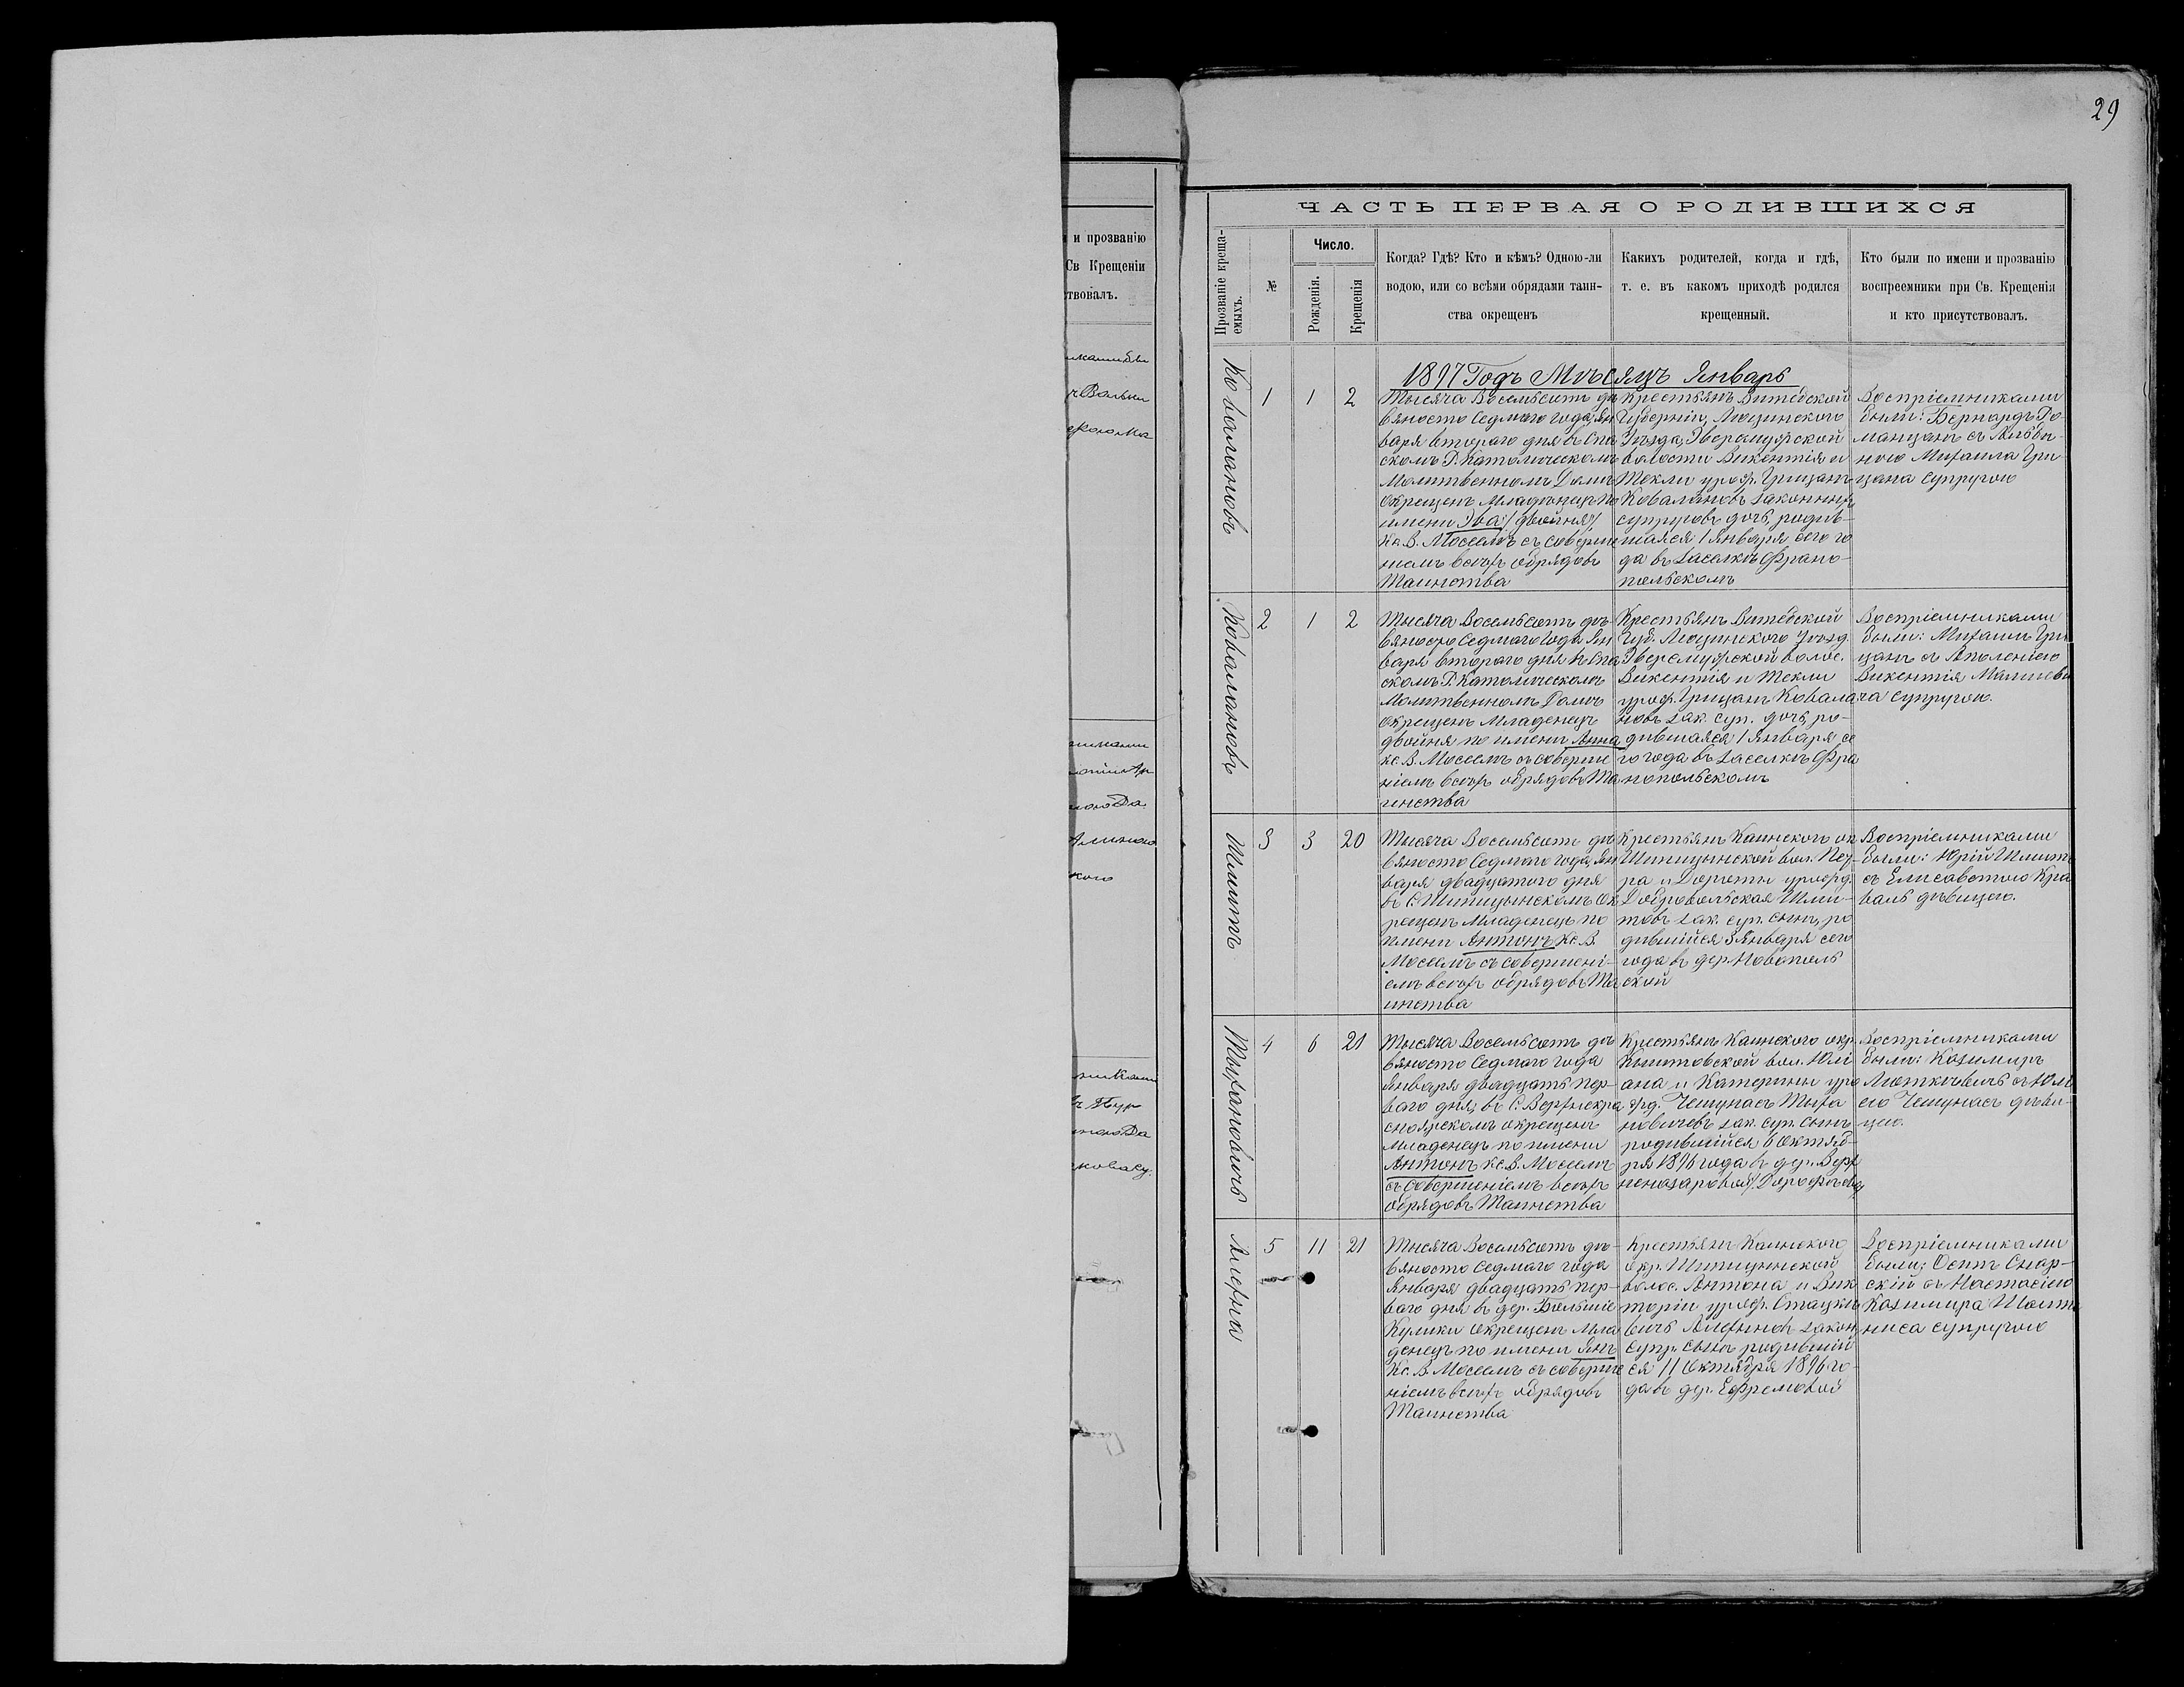 29
и прозванію
Св Крещеніи
ствовалъ.
ЧАСТЬ ПЕРВАЯ О РОДИВШИХСЯ
Прозваніе креща-
емыхъ.
№
Число.
Рожденія.
Крещенія
Когда? Гдѣ? Кто и кѣмъ? Одною-ли
водою, или со всѣми обрядами таин-
ства окрещенъ
Какихъ родителей, когда и гдѣ,
т. е. въ какомъ приходѣ родился
крещенный.
Кто были по имени и прозванію
воспреемники при Св. Крещеніи
и кто присутствовалъ.
1897 Годъ Мѣсяцъ Январь
Ковалановъ
1 1 2
Тысяча Восемьсотъ де
вяносто Седмаго года, Ян
варя втораго дня въ Спа
скомъ Р. Католическомъ
Молитвенномъ Домѣ
Окрещенъ Младенецъ по
имени Эва /двойня/
Кс. В. Моссемъ съ соверше
ніемъ всѣхъ обрядовъ
Таинства
Крестьянъ Витебской
Губерніи, Люцинского
Уѣзда, Эверсмуйжской
волости Викентія и
Текли урож. Грицанъ
Ковалановъ законныхъ
супруговъ дочь, родив-
шаяся 1 Января сего го
да въ Заселкѣ Франо-
польскомъ
Воспріемниками
были: Бернардъ Ро-
манцанъ съ Альби-
ною Михаила Гри-
цана Супругою
Ковалановъ
2 1 2
Тысяча Восемьсотъ де-
вяносто Седмаго Года Ян
варя втораго дня въ Спа
скомъ Р. Католическомъ
Молитвенномъ Домѣ
Окрещенъ Младенецъ
двойня по имени Анна
кс. В. Моссемъ съ соверше
ніемъ всѣхъ обрядовъ Та
инства
Крестьянъ Витебской
Губ. Люцинского Уѣзд.
Эверсмуйжской волос.
Викентія и Текли
урож. Грицанъ Ковала
новъ зак. суп. дочь, ро-
дившаяся 1 Января се
го года въ Заселкѣ Фра
нопольскомъ
Воспріемниками
были: Михаилъ Гри
цанъ съ Аполеніею
Викентія
ча супругою.
Шмитъ
3 3 20
Тысяча Восемьсотъ де
вяносто Седмаго года, Ян
варя двадцатого дня
въ С. Шипицынскомъ Ок
рещенъ Младенецъ по
имени Антонъ Кс. В.
Моссемъ съ совершені-
емъ всѣхъ обрядовъ Та
инства
Крестьянъ Каинского ок
Шипицынской вол. Пет-
ра и Дороты урожд.
Добровольская Шми-
товъ зак. суп. сынъ, ро
дившійся 3 Января сего
года въ дер. Новополь
ской
Воспріемниками
были: Юрій Шмитъ
съ Елисаветою Кра
валь дѣвицею.
Тыхановичъ
4 6 21
Тысяча Восемьсотъ де
вяносто Седмаго года
Января двадцать пер-
ваго дня, въ С. Верхнекра
сноярскомъ окрещенъ
Младенецъ по имени
Антонъ кс. В. Моссемъ
съ совершеніемъ всѣхъ
обрядовъ Таинства
Крестьянъ Каинского окр.
Кыштовской вол. Юлі
ана и Катерины уро
жд. Чешунасъ Тыха
новичевъ зак. суп. сынъ
родившійся 6 Октяб-
ря 1896 года въ дер. Верх
неназаровой
Воспріемниками
были: Казимиръ
съ Юлі
ею Чешунасъ дѣви-
цею.
Алехна
5 11 21
Тысяча Восемьсотъ де-
вяносто Седмаго года
Января двадцать пер-
ваго дня въ дер. Большіе
Кулики Окрещенъ Мла
денецъ по имени Янъ
Кс. В. Моссемъ съ соверше
ніемъ всѣхъ обрядовъ
Таинства
Крестьянъ Каинского
окр. Шипицынской
волос. Антона и Вик
торіи урож. Стацке
вичъ Алехновъ закон.
супр. сынъ родившій
ся 11 Октября 1896 го-
да въ дер. Ефремовой
Воспріемниками
были: Осипъ Снар-
скій съ Настасіею
Казимира
супругою